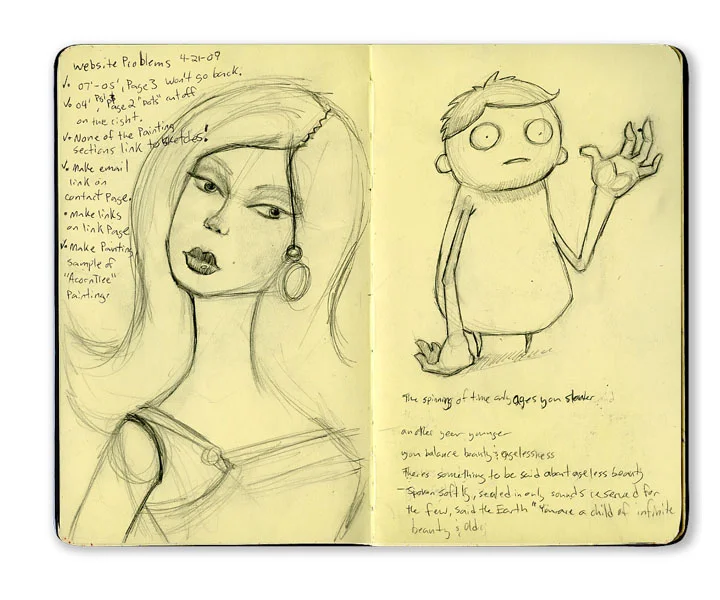 Website Problems 4-21-09
√• 07'-05', Page 3 won't go back.
√• 04' Page 2 "Dots" cut off
on the right.
√• None of the Painting
sections link to sketches!
√• Make email
link on
contact Page.
• Make links
on link Page
√• Make Painting
sample of
"AcornTree"
Painting.
The spinning of time only ages you slower
another year younger
you balance beauty & agelessness
Theres something to be said about ageless beauty
- Spoken softly, sealed in only sounds reserved for
the few, said the Earth "You are a child of infinite
beauty &